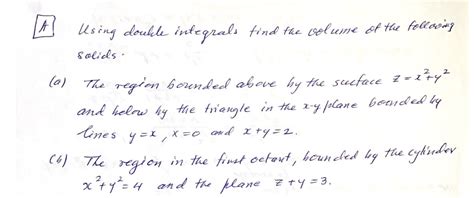 A Using double integrals find the volume of the following
solids.
(a) The region bounded above by the surface z = x²+y²
and below by the triangle in the x-y plane bounded by
lines y=x, x=0 and x+y=2.
(b) The region in the first octant, bounded by the cylinder
x²+y²=4 and the plane z+y=3.